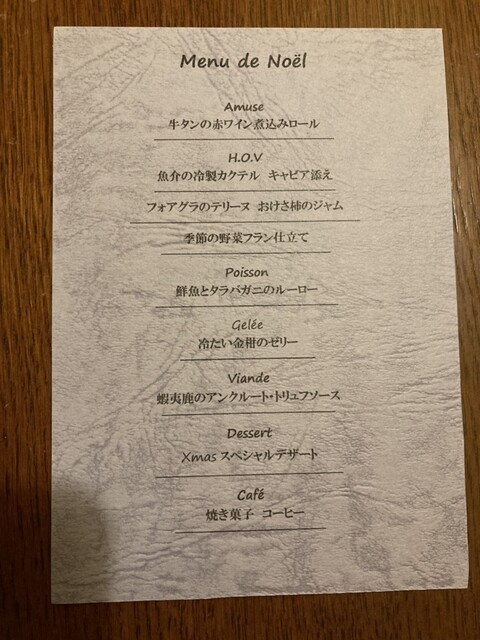 Menu de Noël
Amuse
牛タンの赤ワイン煮込みロール
H.O.V
魚介の冷製カクテル キャビア添え
フォアグラのテリーヌ おけさ柿のジャム
季節の野菜フラン仕立て
Poisson
鮮魚とタラバガニのルーロー
Gelée
冷たい金柑のゼリー
Viande
蝦夷鹿のアンクルート・トリュフソース
Dessert
Xmas スペシャルデザート
Café
焼き菓子 コーヒー